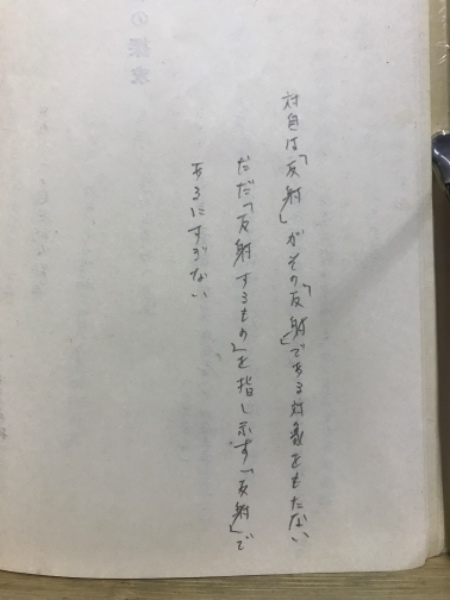 対自は「反射」がその「反射」である対象をもたない
ただ「反射するもの」を指し示す「反射」で
あるにすぎない
探求